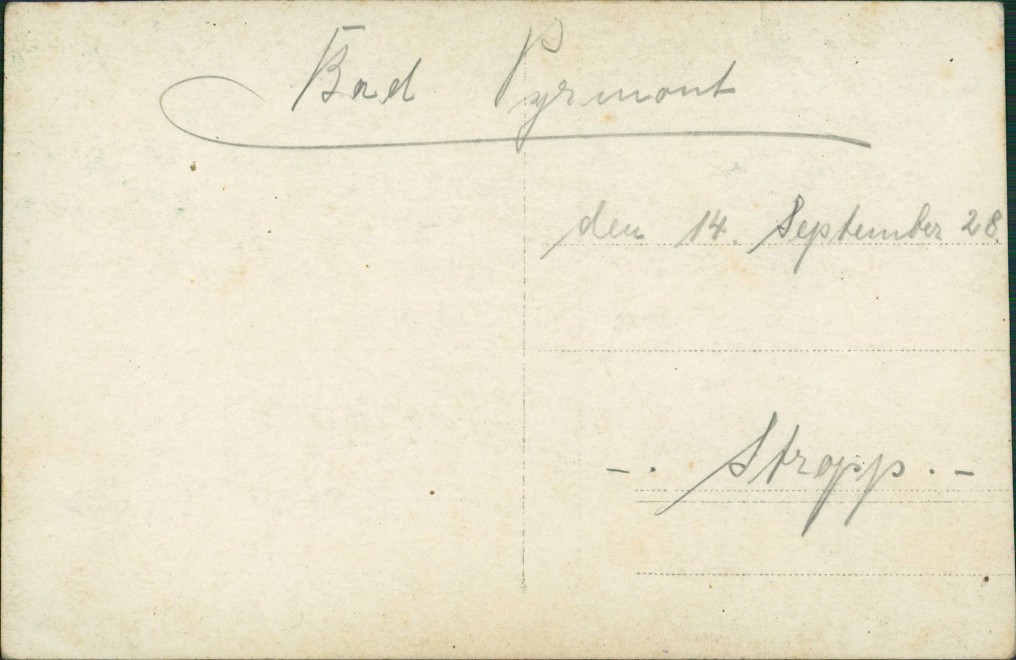 Bad Pyrmont
den 14. September 28.
-. Stropp .-